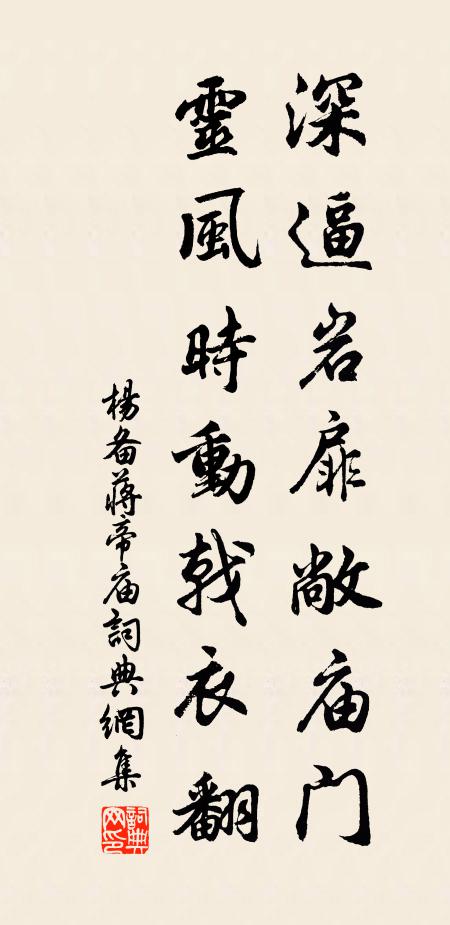 深逼岩扉敞庙门
靈風時動戟衣翻
楊备蔣帝庙詞典網集
詞典网印